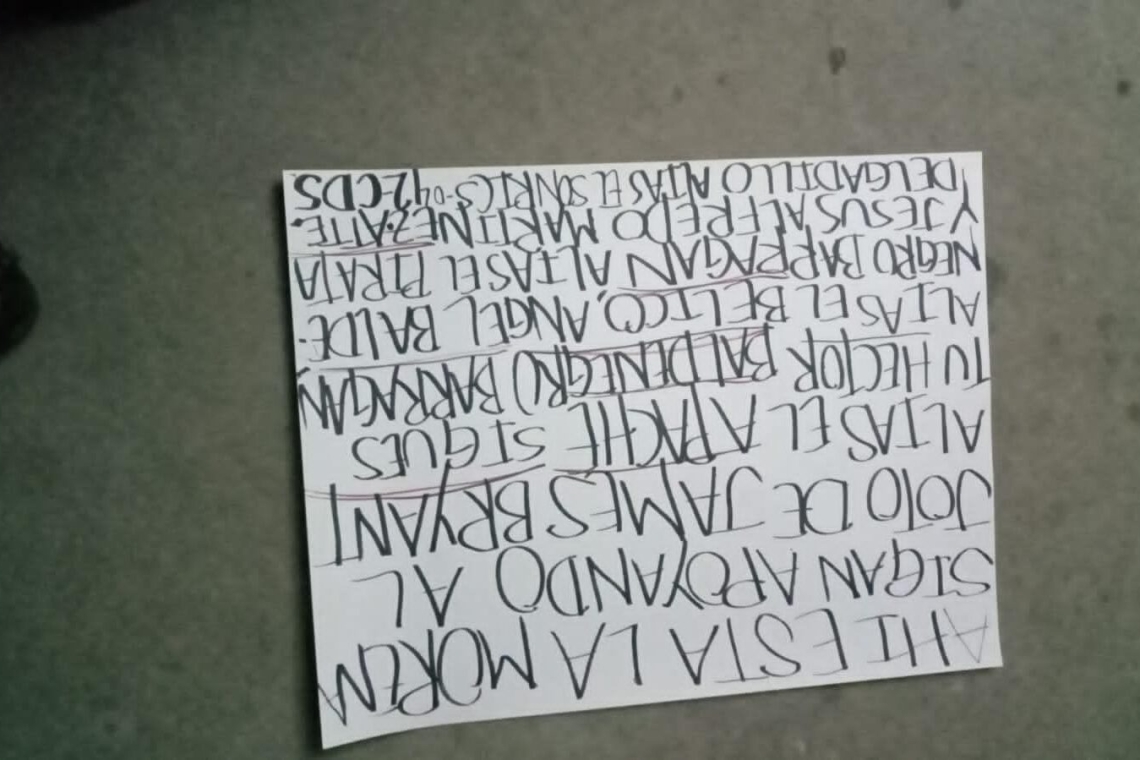 AHI ESTA LA MOREN
SIGAN APOYANDO AL
JOTO DE JAMES BRYANT
ALIAS EL APACHE SIGUES
TU HECTOR BALDENEGRO BARRAGAN
ALIAS EL BELICO, ANGEL BALDE-
NEGRO BARRAGAN ALIAS EL PIRATA
Y JESUS ALFREDO MARTINEZ. ATTE.
DELGADILLO ALIAS EL SONRICS-042 CDS